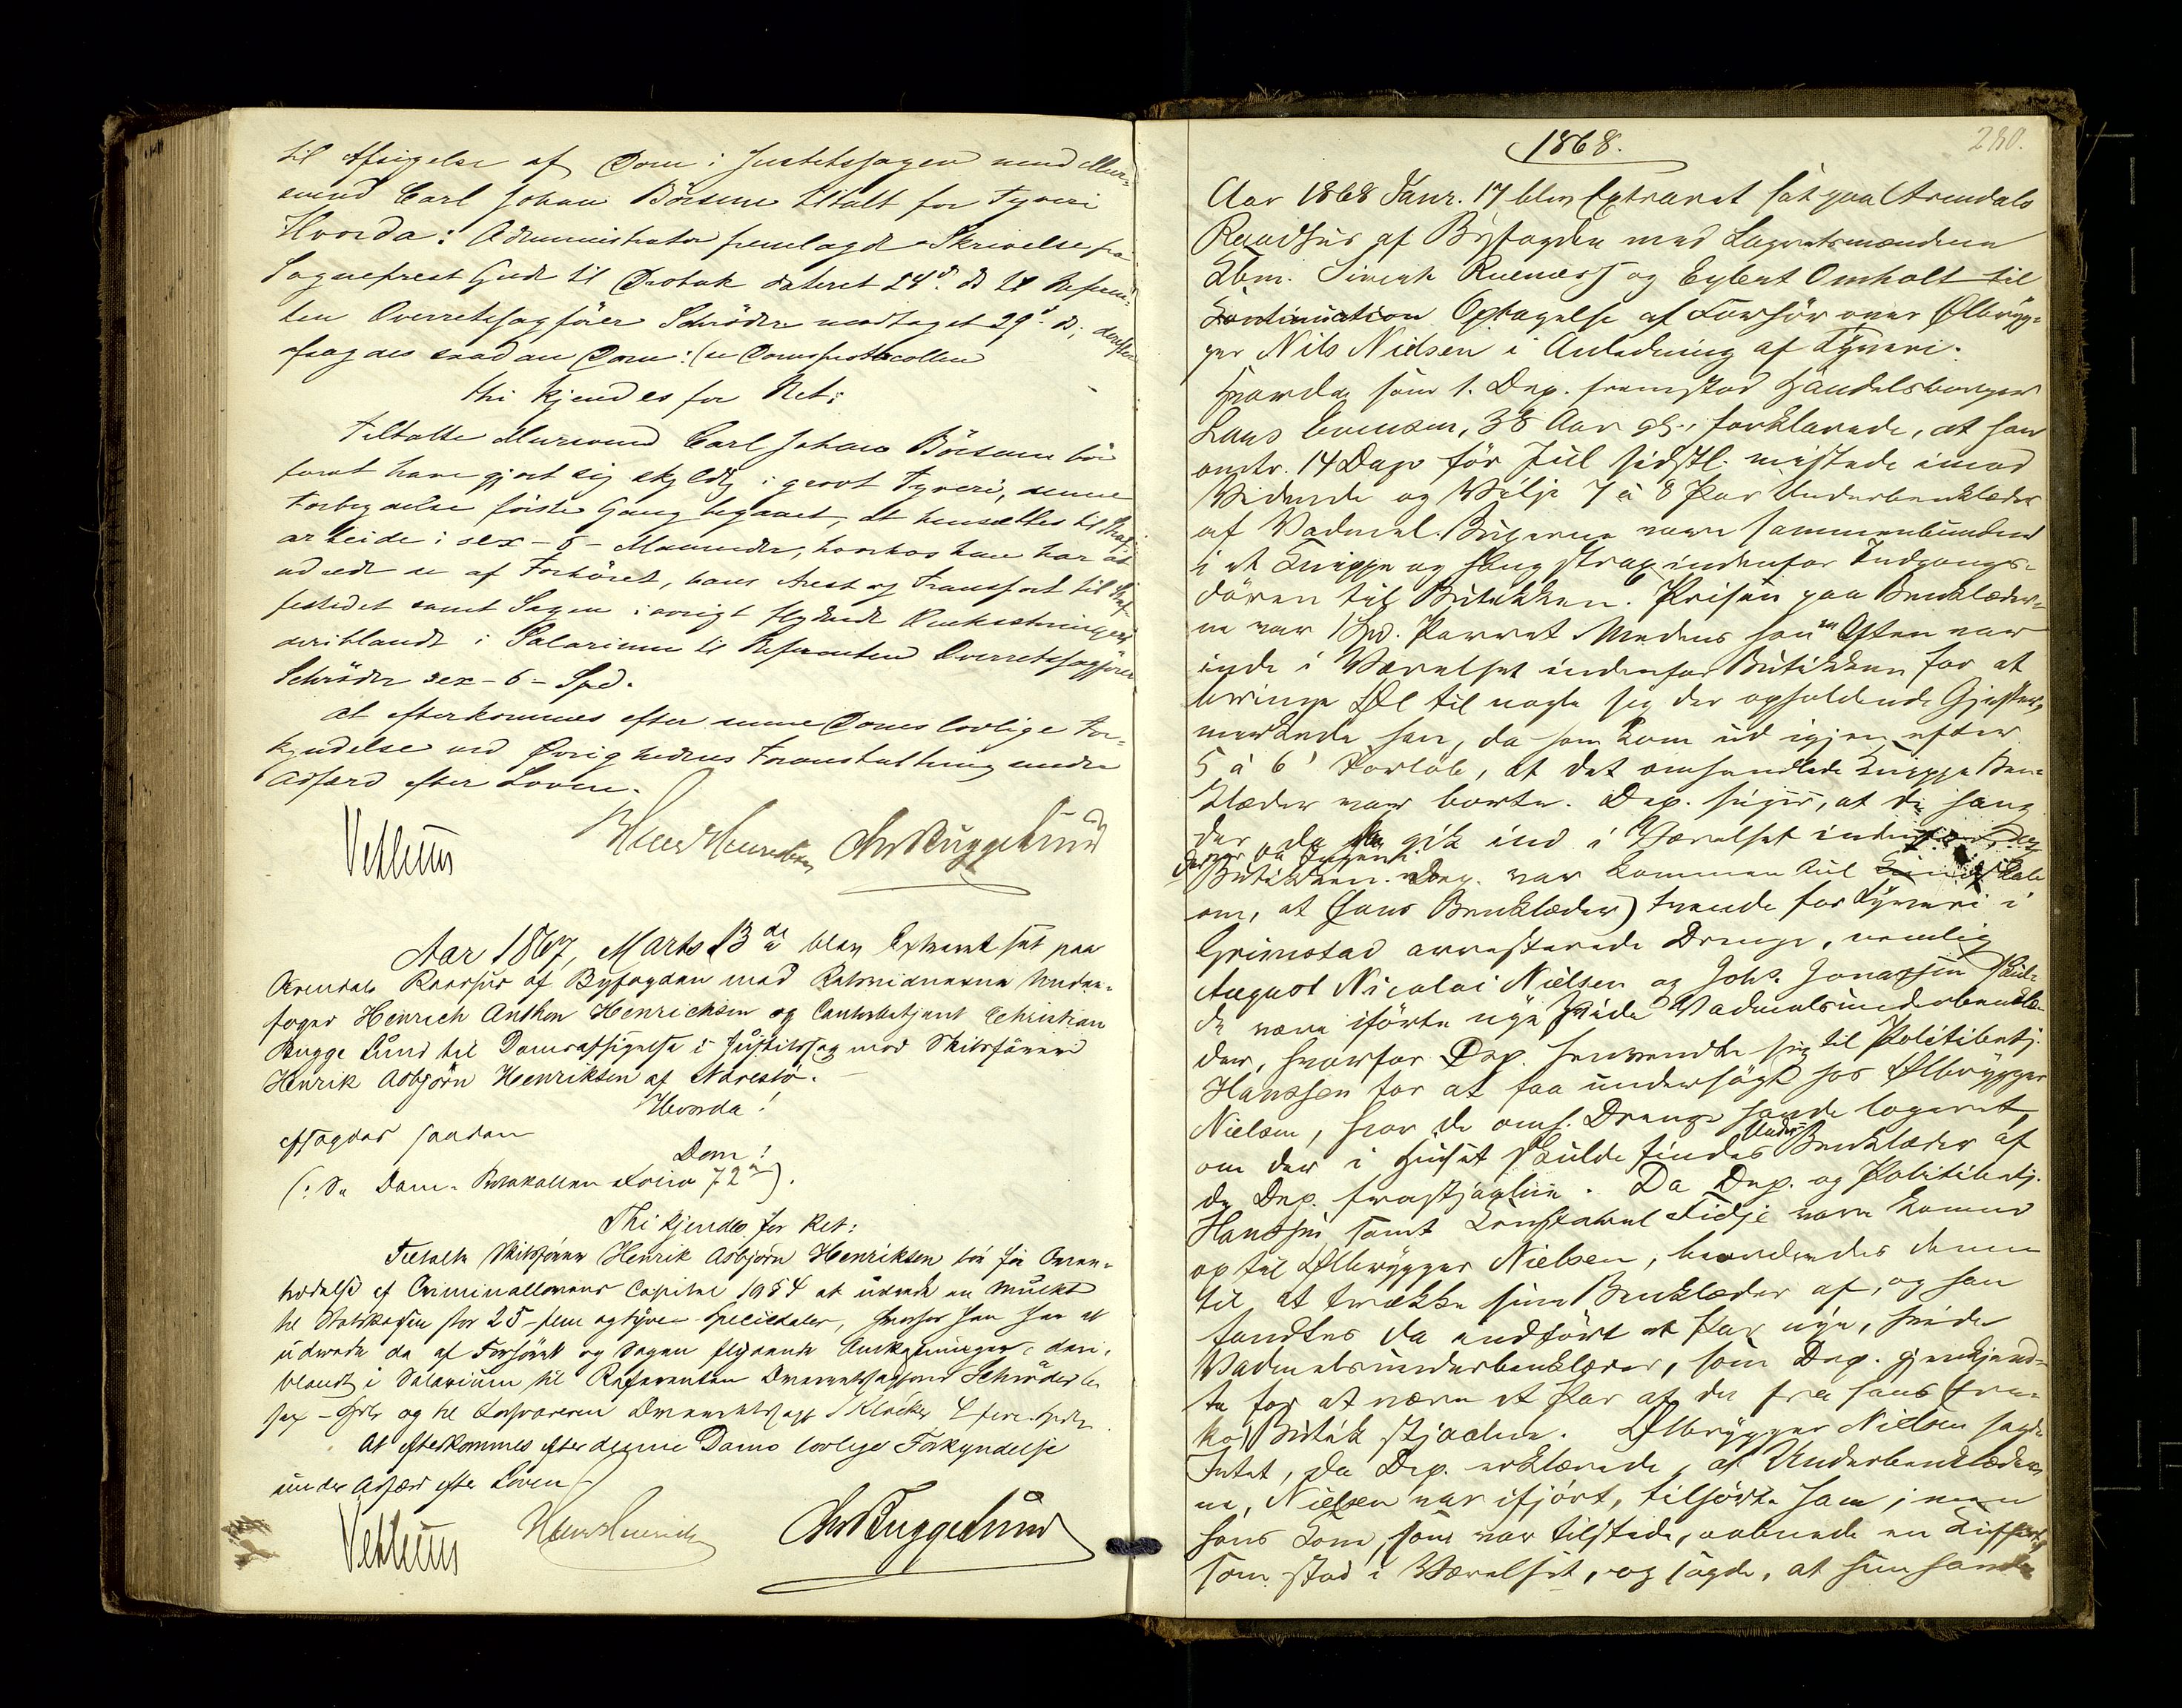 til Afsigelse af Dom i Justitssagen mod Mur-
svend Carl Johan Börsum tiltalt for Tyveri
Hvorda: Administrator fremlagde Skrivelse fra
Sogneprest Gude til Protok dateret 24d. ds til Referen-
ten Overretssagförer Schröder modtaget 29d. ds; derefter
afsagdes saadan Dom: (se Domsprotocollen
thi kjendes for Ret:
Tiltalte Mursvend Carl Johan Börsum bör
foruat have gjort sig skyldig i grovt Tyveri, denne
Forbrydelse förste Gang begaaet, at hensættes til Straf-
arbeide i sex - 6 - Maaneder, hvorhos han har at
udrede de af Forhöret, hans Arest og Transport til Straf-
festedet samt Sagen i övrigt flydende Omkostninger
deriblandt i Salarium til Referenten Overretssagförer
Schröder sex - 6 - Spd.
At efterkommes efter denne Doms lovlige For-
kyndelse ved Övrighedens Foranstaltning under
Adfærd efter Loven.
Vetlhuus Chr Bugge Lund
Aar 1867, Marts 13de blev Extraret sat paa
Arendals Raadhus af Byfogden med Retsvidnerne Under-
foged Henrich Anthon Henrichsen og Contorbetjent Christian
Bugge Lund til Domsafsigelse i Justitssag mod Skibsförer
Henrik Asbjörn Henriksen af Narestö.
Hvorda!
afsagdes saadan
Dom!
(: Se Dom-Protokollen Folio 72).
Thi kjendes for Ret:
Tiltalte Skibsförer Henrik Asbjörn Henriksen bör for Over-
trædelse af Criminallovens Capitel 19 § 4 at udrede en Mulkt
til Statskassen stor 25 - fem og tyve - Speciedaler, hvorhos han har at
udrede de af Forhöret og Sagen flydende Omkostninger, deri-
blandt i Salarium til Referenten Overretssagförer Schröder
sex - Spdlr og til Defensoren Overretssagf. Klöcker 4 fire Spdlr
At efterkommes efter denne Doms lovlige Forkyndelse
under Adfærd efter Loven
Vetlhuus Chr Bugge Lund
280.
1868.
Aar 1868 Janr. 17 blev Extraret sat paa Arendals
Raadhus af Byfogden med Lagrettesmændene
Kbm. Sivert Ruenæss og Eylert Omholt til
Continuation Optagelse af Forhör over Ölbryg-
ger Nils Nielsen i Anledning af Tyveri.
Hvorda som 1. Dep. fremstod Handelsborger
Lars Evensen, 38 Aar gl., forklarede, at han
omtr. 14 Dage för Jul sidstl. mistede imod
Vidende og Vilje 7 à 8 Par Underbenklæder
af Vadmel. Buxerne vare sammenbundne
i et Knippe og hang strax indenfor Indgangs-
dören til Butikken. Prisen paa Benklæder-
ne var 1 Spd. Parret. Medens han en Aften var
inde i Værelset indenfor Butikken for at
bringe Öl til nogle sig der opholdende Gjester,
mærkede han, da han kom ud igjen efter
5 à 6' Forlöb, at det omhandlede Knippe Ben-
klæder var borte. Dep. siger, at de hang
der da han gik ind i Værelset indenfor
Butikken. Dep. var kommen til Kundskab
om, at (hans Benklæder) tvende for Tyveri i
Grimstad arresterede Drenge, nemlig
August Nicolai Nielsen og Johs. Jonassen skul-
de være iförte nye hvide Vadmelsunderbenklæ-
der, hvorfor Dep. henvendte sig til Politibetj.
Hanssen for at faa undersögt hos Ölbrygger
Nielsen, hvor de omh. Drenge havde logeret,
om der i Huset skulde findes Under-Benklæder af
de Dep. frastjaalne. Da Dep. og Politibetj.
Hanssen samt Konstabel Fidje vare komne
op til Ölbrygger Nielsen, beordredes denne
til at trække sine Benklæder af, og han
fandtes da endfört et Par nye, hvide
Vadmelsunderbenklæder, som Dep. gjenkjend-
te for at være et Par af de fra hans
Butik stjaalne. Ölbrygger Nielsen sagde
Intet, da Dep. erklærede, at Underbenklæder-
ne, Nielsen var ifjört, tilhörte ham; men
hans Kone, som var tilstede, aabnede en Kuffert,
som stod i Værelset, og sagde, at hun havde